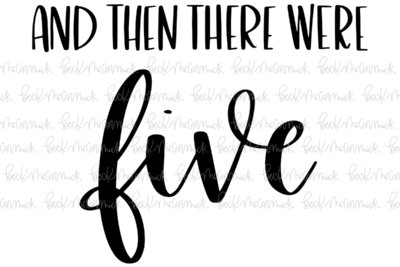 AND THEN THERE WERE
five